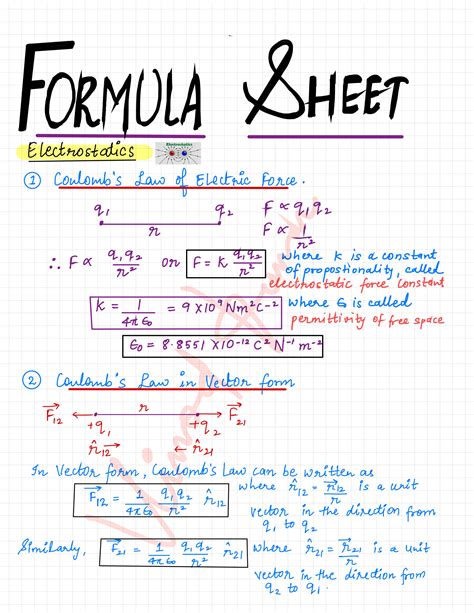 FORMULA SHEET
Electrostatics
Electrostatics
① Coulomb's Law of Electric Force.
q₁ q₂ F ∝ q₁q₂
r F ∝ 1/r²
∴ F ∝ q₁q₂/r² or F = K q₁q₂/r² where K is a constant
of proportionality, called
electrostatic force constant
K = 1/4πε₀ = 9 × 10⁹ Nm²C⁻² where ε₀ is called
permittivity of free space
ε₀ = 8.8551 × 10⁻¹² C² N⁻¹ m⁻²
② Coulomb's Law in Vector form
F⃗₁₂ r F⃗₂₁
+q₁ +q₂
r̂₁₂ r̂₂₁
In Vector form, Coulomb's Law can be written as
F⃗₁₂ = 1/4πε₀ q₁q₂/r² r̂₁₂ where r̂₁₂ = r⃗₁₂/r is a unit
vector in the direction from
q₁ to q₂
Similarly, F⃗₂₁ = 1/4πε₀ q₁q₂/r² r̂₂₁ where r̂₂₁ = r⃗₂₁/r is a unit
vector in the direction from
q₂ to q₁.